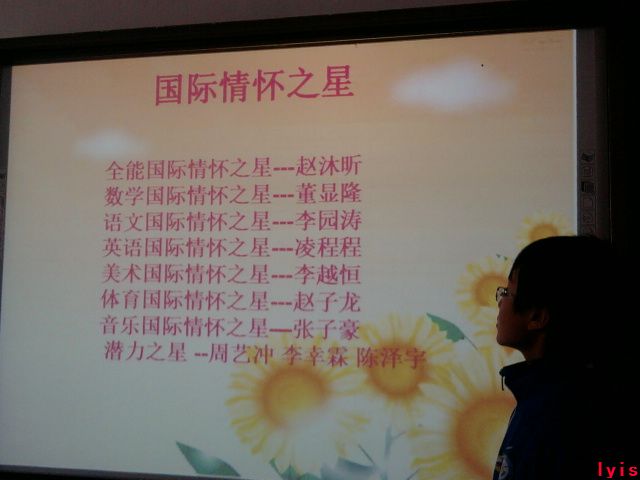 国际情怀之星
全能国际情怀之星---赵沐昕
数学国际情怀之星---董显隆
语文国际情怀之星---李园涛
英语国际情怀之星---凌程程
美术国际情怀之星---李越恒
体育国际情怀之星---赵子龙
音乐国际情怀之星—张子豪
潜力之星 --周艺冲 李幸霖 陈泽宇
lyis